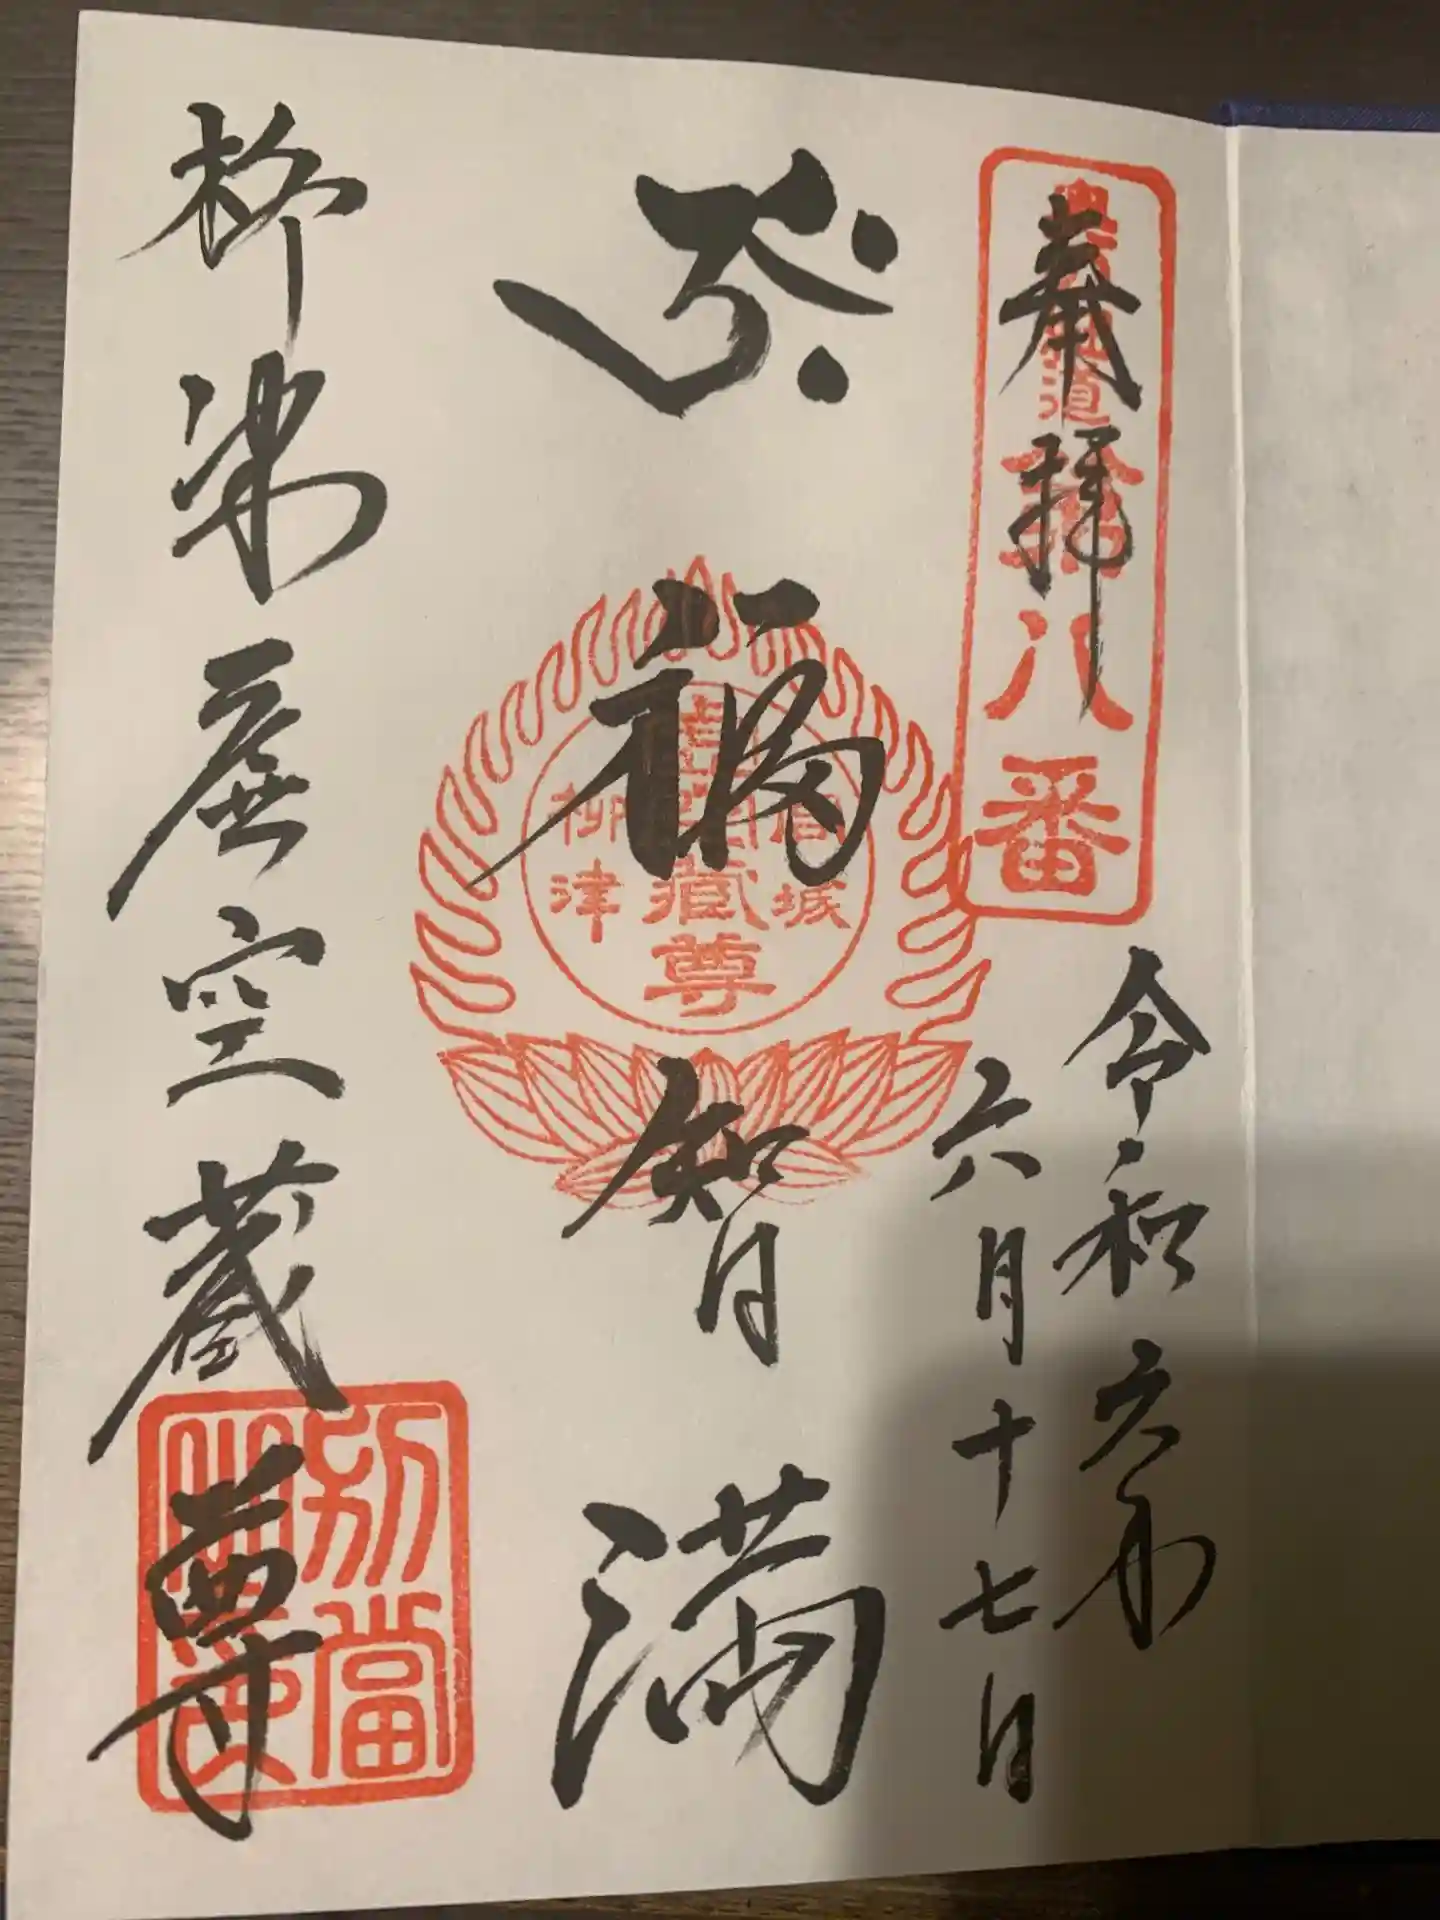 奉拝
道
拾八番
令和六年
六月十七日
福智満
宮城
虚空藏尊
柳津
柳津虚空蔵尊
別當